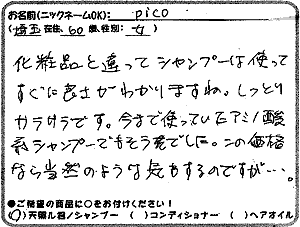 お名前(ニックネームOK): pico
(埼玉在住、60歳、性別: 女)
化粧品と違ってシャンプーは使って
すぐに良さがわかりますね。しっとり
サラサラです。今まで使っていたアミノ酸
系シャンプーでもそう発でした。この価格
なら当然のような気もするのですが…。
●ご希望の商品に○をお付けください!
(○)天陽ル名ノシャンプー ( )コンディショナー ( )ヘアオイル